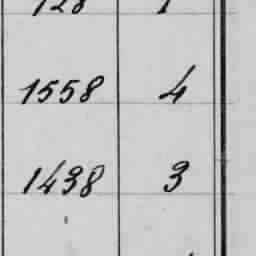 128 1
1558 4
1438 3